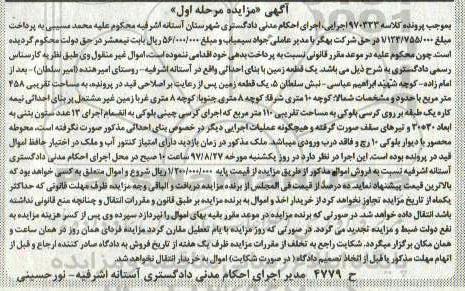 آگهی «مزایده مرحله اول»
بموجب پرونده کلاسه ۹۷۰۳۳۳ اجرایی، اجرای احکام مدنی دادگستری شهرستان آستانه اشرفیه محکوم علیه محمد مسیبی به پرداخت
مبلغ ۱/۱۲۴/۷۵۵/۰۰۰ در حق شرکت بهگر با مدیر عاملی جواد سیمیاب و مبلغ ۵۶/۰۰۰/۰۰۰ ریال بابت نیمعشر در حق دولت محکوم گردیده
است. چون محکوم علیه در موعد مقرر قانونی نسبت به پرداخت بدهی خود اقدامی ننموده است، اموال غیر منقول وی طبق نظر به کارشناس
رسمی دادگستری به شرح ذیل می باشد. یک قطعه زمین با بنای احداثی واقع در آستانه اشرفیه – روستای امیر هنده (امیر سلطان) – بعد از
امام زاده – کوچه شهید ابراهیم عباسی – نبش سلطان ۵، یک قطعه زمین پس از رعایت بر اصلاحی قید در پرونده، به مساحت تقریبی ۴۵۸
متر مربع با حدود و مشخصات شمالا: کوچه ۱۰ متری شرقا: کوچه ۸ متری جنوبا: کوچه ۸ متری غربا: زمین غیر مشتمل بر بنای احداثی نیمه
کاره یک طبقه بر روی کرسی بلوکی به مساحت تقریبی ۱۱۰ متر مربع که اجرای کرسی چینی بلوکی به انضمام اجرای ۱۳ عدد ستون بتنی به
ابعاد ۳۰×۳۰ و تیرهای سقف صورت گرفته و هیچگونه عملیات اجرایی دیگر در خصوص بنای احداثی مذکور صورت نگرفته است، محوطه
محصور با دیوار بلوکی ۱۰ رج و فاقد درب ورودی میباشد. ملک مذکور در زمان بازدید دارای امتیاز کنتور آب و ملک در اختیار حافظ اموال
قید در پرونده بوده است. این اجرا در نظر دارد در روز یکشنبه مورخه ۹۷/۸/۲۷ ساعت ۱۰ صبح در محل اجرای احکام مدنی دادگستری
آستانه اشرفیه نسبت به فروش اموال مذکور از طریق مزایده از قیمت پایه ۱/۲۰۰/۰۰۰/۰۰۰ ریال شروع و اموال متعلق به کسی خواهد بود که
بالاترین قیمت پیشنهاد نماید. ده درصد از قیمت فی المجلس از برنده مزایده دریافت و الباقی وجه مزایده ظرف مهلت قانونی که حداکثر
یکماه از تاریخ مزایده تجاوز نخواهد کرد از خریدار اخذ و اموال به برنده مزایده بر طبق قانون و مقررات انتقال و چنانچه منع قانونی نداشته
باشد انتقال داده خواهد شد. در صورتی که برنده مزایده در موعد مقرر بقیه بهای اموال را نپردازد سپرده وی پس از کسر هزینه مزایده به
نفع دولت ضبط و مزایده تجدید می گردد. در صورتی که روز مزایده با یام تعطیل مقارن گردد مزایده فردای همان روز در همان ساعت و
همان مکان برگزار میگردد. شکایت راجع به تخلف از مقررات مزایده ظرف یک هفته از تاریخ فروش به دادگاه صادر کننده ارجاع و قبل از
اتهام مهلت مذکور یا قبل از اتخاذ تصمیم دادگاه (در صورت شکایت) اموال به خریدار انتقال نخواهد شد.
ح ۴۷۷۹ مدیر اجرای احکام مدنی دادگستری آستانه اشرفیه - نورحسینی